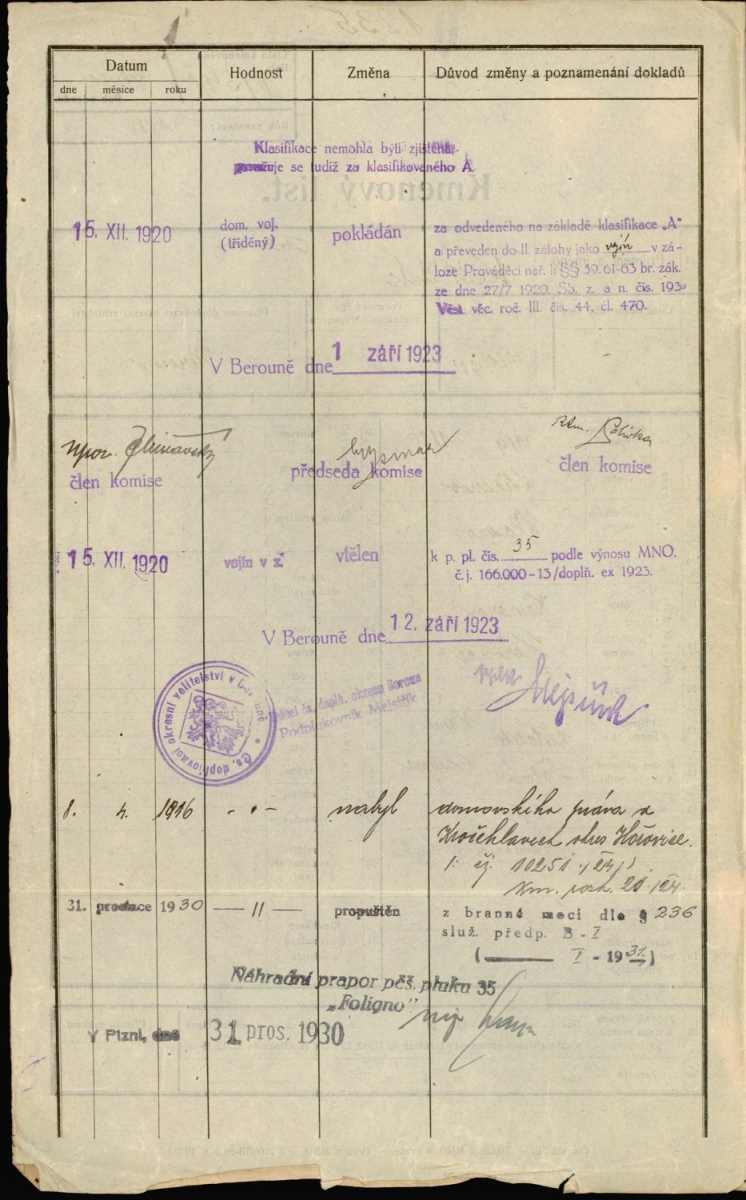 Datum
Hodnost
Změna
Důvod změny a poznamenání dokladů
dne
měsíce
roku
Klasifikace nemohla býti zjištěna.
považuje se tudíž za klasifikovaného A.
15. XII. 1920
dom. voj.
(tříděný)
pokládán
za odvedeného na základě klasifikace „A"
a převeden do II. zálohy jako vojín v zá-
loze Prováděcí nař. k §§ 39. 61-63 br. zák.
ze dne 27/7 1920. Sb. z. a n. čís. 193
Věs. věc. roč. III. čís. 44. čl. 470.
V Berouně dne 1 září 1923
npor.
člen komise
předseda komise
člen komise
15. XII. 1920
vojín v z.
vtělen
k p. pl. čís. 35 podle výnosu MNO.
č. j. 166.000-13/doplň. ex 1923.
V Berouně dne 12. září 1923
Čs. doplňovací okresní velitelství v Berouně
Velitel čs. doplň. okresu Beroun
Podplukovník
8. 4. 1916
- " -
nabyl
domovského práva v
Kročehlavech okres Hořovice.
čj. 10251
31. prosince 1930
— " —
propuštěn
z branné moci dle § 236
služ. předp. B-I
( I - 1931 )
Náhradní prapor pěš. pluku 35
„Foligno"
V Plzni, dne 31. pros. 1930